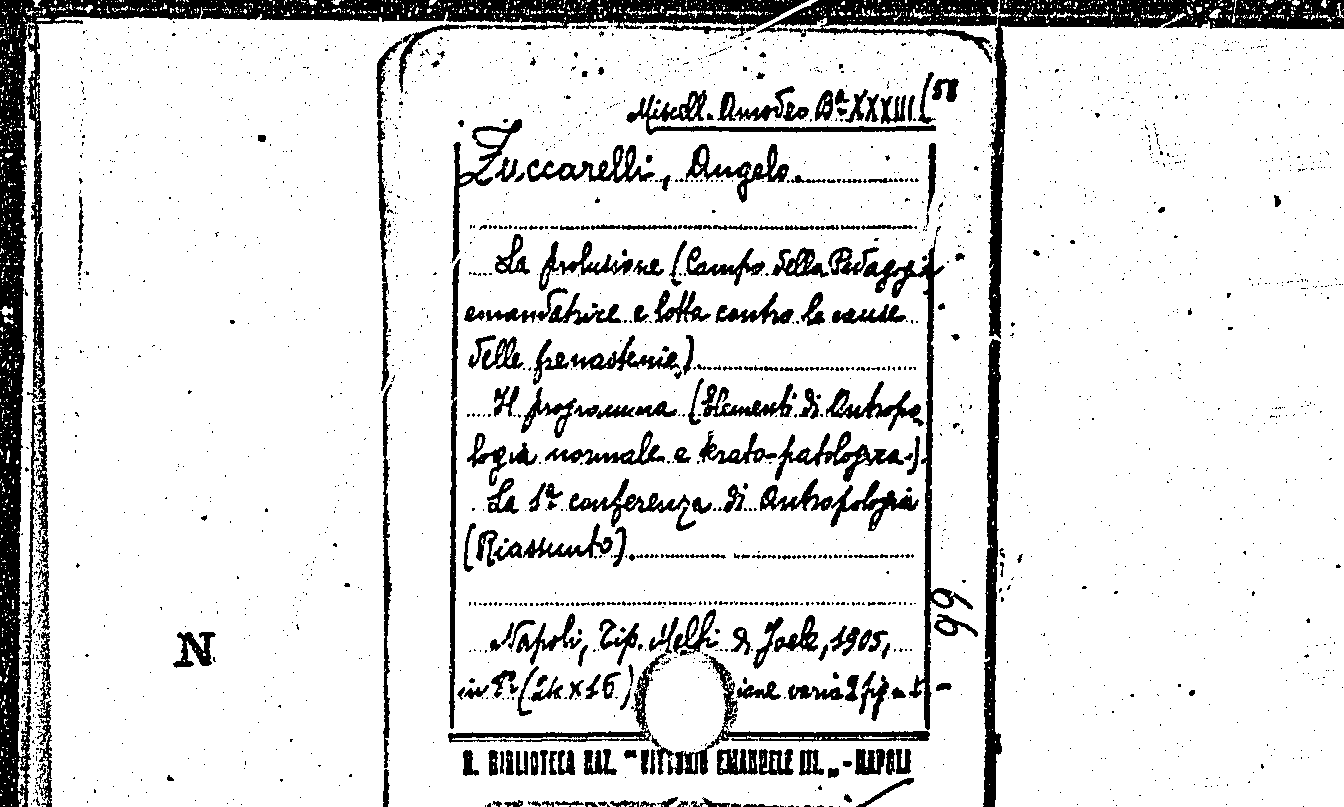 Miscell. Amodeo Bª XXXIII (58
Zuccarelli, Angelo.
La prolusione (Campo della Pedagogia
emendatrice e lotta contro le cause
delle frenastenie).
Il programma (Elementi di Antropo
logia normale e krato-patologica.).
La 1ª conferenza di Antropologia
(Riassunto).
66
Napoli, Tip. Melfi & Joele, 1905,
in 8º (24x16) varia 2 fig.
N
R. BIBLIOTECA NAZ. "VITTORIO EMANUELE III." - NAPOLI